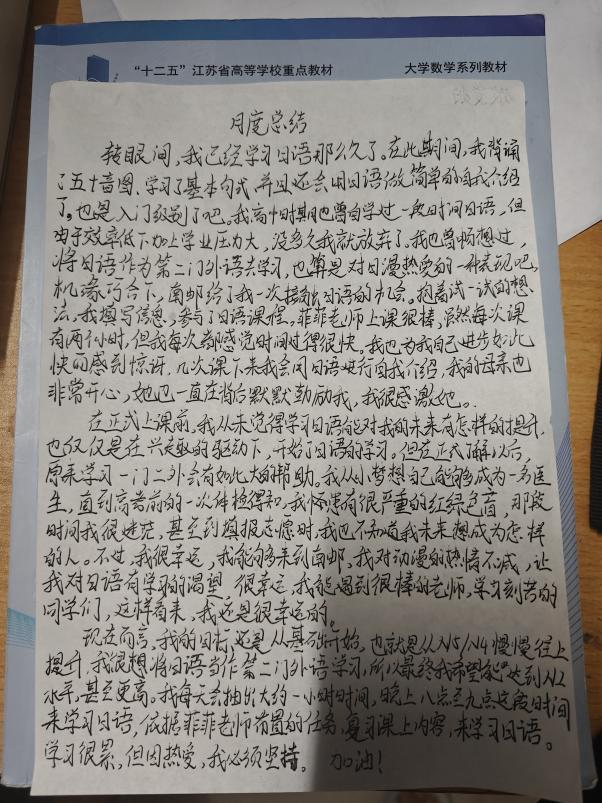 “十二五”江苏省高等学校重点教材 大学数学系列教材
月度总结
转眼间,我已经学习日语那么久了。在此期间,我背诵
了五十音图、学习了基本句式,并且还会用日语做简单的自我介绍
了。也是入门级别了吧。我高中时期也曾自学过一段时间日语,但
由于效率低下加上学业压力大,没多久我就放弃了。我也曾畅想过,
将日语作为第二门外语去学习,也算是对日漫热爱的一种表现吧。
机缘巧合下,南邮给了我一次接触日语的机会。抱着试一试的想
法,我填写信息,参与了日语课程。菲菲老师上课很棒,虽然每次课
有两个小时,但我每次都感觉时间过得很快。我也为我自己进步如此
快而感到惊讶,几次课下来我会用日语进行自我介绍,我的母亲也
非常开心,她也一直在背后默默鼓励我,我很感激她。
在正式上课前,我从未觉得学习日语能对我的未来有怎样的提升,
也仅仅是在兴趣的驱动下,开始了日语的学习。但在正式了解以后,
原来学习一门二外会有如此大的帮助。我从小梦想自己能够成为一名医
生,直到高考前的一次体检得知,我怀患有很严重的红绿色盲,那段
时间我很迷茫,甚至到填报志愿时,我也不知道我未来想成为怎样
的人。不过,我很幸运,我能够来到南邮,我对动漫的热情不减,让
我对日语有学习的渴望,很幸运,我能遇到很棒的老师,学习刻苦的
同学们,这样看来,我还是很幸运的。
现在而言,我的目标,还是从基础开始。也就是从N5/N4慢慢往上
提升,我很想将日语当作第二门外语学习,所以最终我希望能达到N2
水平,甚至更高。我每天会抽出大约一小时时间,晚上八点至九点这段时间
来学习日语,依据菲菲老师布置的任务,复习课上内容,来学习日语。
学习很累,但因热爱,我必须坚持。 加油!